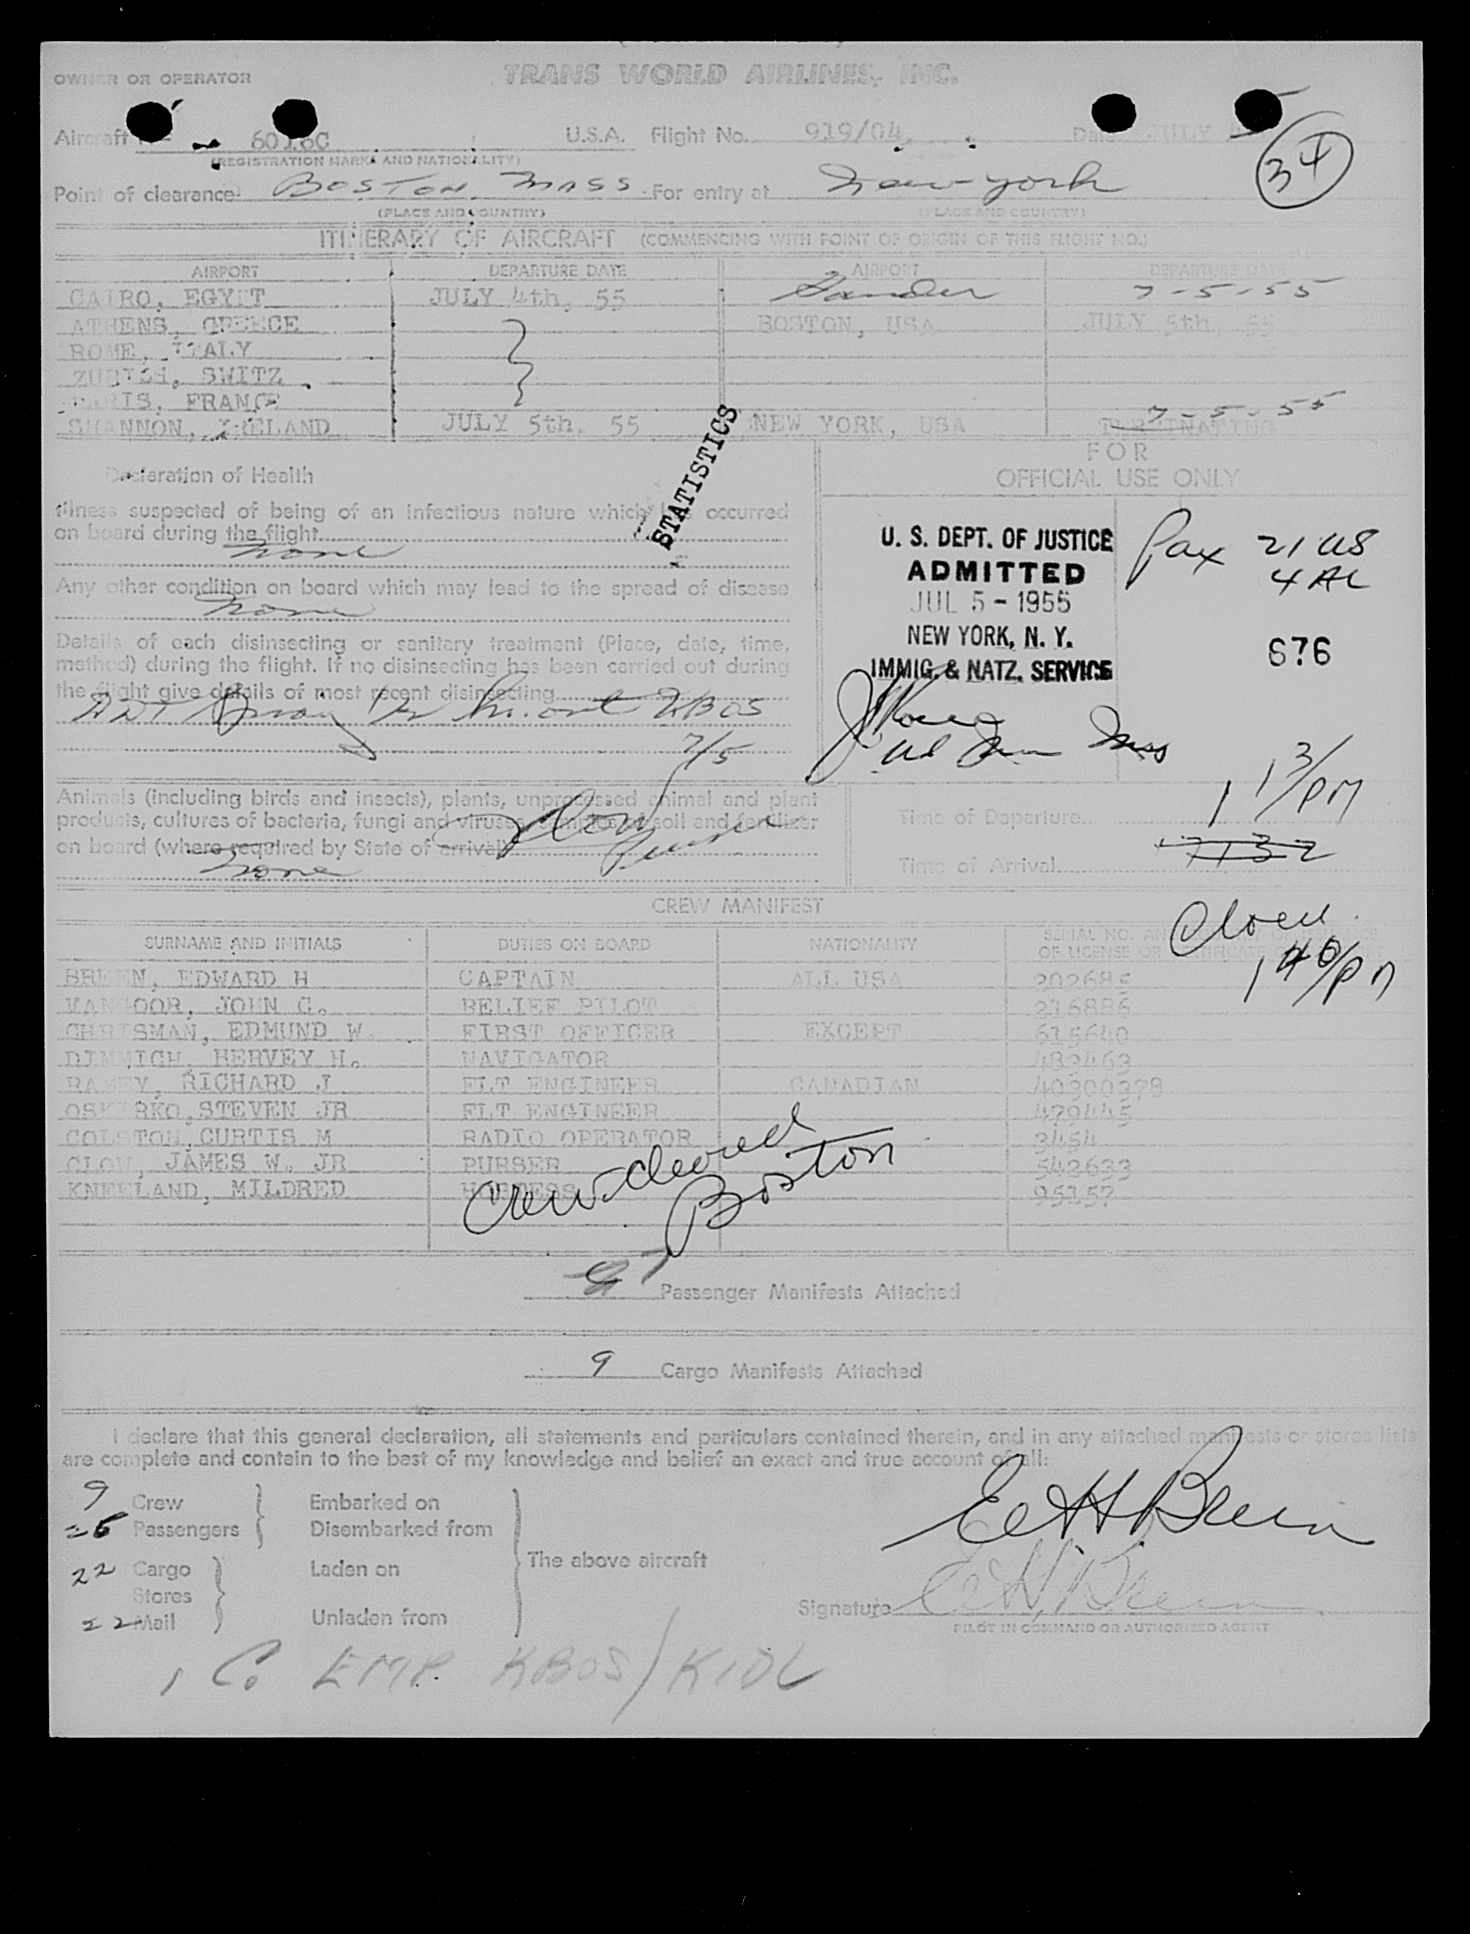 OWNER OR OPERATOR TRANS WORLD AIRLINES, INC.
Aircraft 6016C U.S.A. Flight No. 919/04 Date JULY
(REGISTRATION MARKS AND NATIONALITY)
34
Point of clearance: BOSTON, MASS For entry at New York
(PLACE AND COUNTRY) (PLACE AND COUNTRY)
ITINERARY OF AIRCRAFT (COMMENCING WITH POINT OF ORIGIN OF THIS FLIGHT NO.)
AIRPORT DEPARTURE DATE AIRPORT DEPARTURE DATE
CAIRO, EGYPT JULY 4th, 55 Gander 7-5-55
ATHENS, GREECE BOSTON, USA JULY 5th 55
ROME, ITALY
ZURICH, SWITZ.
PARIS, FRANCE 7-5-55
SHANNON, IRELAND JULY 5th. 55 NEW YORK, USA TERMINATING
STATISTICS
FOR
OFFICIAL USE ONLY
Declaration of Health
Illness suspected of being of an infectious nature which has occurred
on board during the flight
none
Any other condition on board which may lead to the spread of disease
none
Details of each disinsecting or sanitary treatment (Place, date, time,
method) during the flight. If no disinsecting has been carried out during
the flight give details of most recent disinsecting
KBOS
7/5
U. S. DEPT. OF JUSTICE
ADMITTED
JUL 5 - 1955
NEW YORK, N. Y.
IMMIG. & NATZ. SERVICE
Pax 21 US
4 AL
676
Animals (including birds and insects), plants, unprocessed animal and plant
products, cultures of bacteria, fungi and viruses, soil and fertilizer
on board (where required by State of arrival)
none
Purser
Time of Departure
1 13/PM
Time of Arrival 7132
CREW MANIFEST
Closed
1 40/PM
SURNAME AND INITIALS DUTIES ON BOARD NATIONALITY SERIAL NO. OF LICENSE OR CERTIFICATE
BREEN, EDWARD H CAPTAIN ALL USA 202685
MANGOOR, JOHN C. RELIEF PILOT 216886
CHRISMAN, EDMUND W. FIRST OFFICER EXCEPT 615640
DIMMICH, HERVEY H. NAVIGATOR 482463
RAMEY, RICHARD J FLT ENGINEER CANADIAN 40300378
OSKIRKO, STEVEN JR FLT ENGINEER 479445
COLSTON, CURTIS M RADIO OPERATOR 3454
CLOW, JAMES W. JR PURSER 542633
KNEELAND, MILDRED HOSTESS 95157
Crew cleared
Boston
Passenger Manifests Attached
9 Cargo Manifests Attached
I declare that this general declaration, all statements and particulars contained therein, and in any attached manifests or stores lists
are complete and contain to the best of my knowledge and belief an exact and true account of all:
9 Crew Embarked on
25 Passengers Disembarked from
The above aircraft
22 Cargo Laden on
Stores
22 Mail Unladen from
E H Breen
Signature E.H. Breen
PILOT IN COMMAND OR AUTHORIZED AGENT
1 Co EMP. KBOS/KIDL